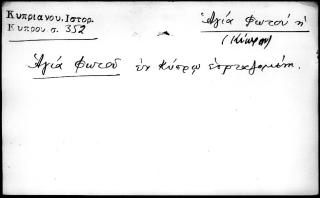 Κυπριανου. Ιστορ.
Κυπρου σ. 352
Ἁγία Φωτού ἡ
(Κύπρου)
Ἁγία Φωτοῦ ἐν Κύπρῳ ἑορταζομένη.